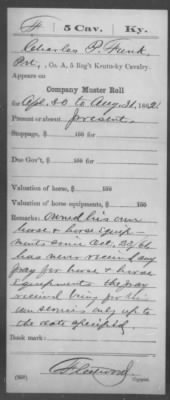 F | 5 Cav. | Ky.
Charles P. Funk
Pvt., Co. A, 5 Reg't Kentucky Cavalry.
Appears on
Company Muster Roll
for Apl. 30 to Aug 31, 1862.
Present or absent present
Stoppage, $ 100 for
Due Gov't, $ 100 for
Valuation of horse, $ 100
Valuation of horse equipments, $ 100
Remarks: Owned his own
horse & horse equip-
ments since Oct. 27, 61
has never received any
pay for horse & horse
Equipments the pay
received being for his
own services only up to
the date specified
Book mark:
Fleetwood
Copyist.